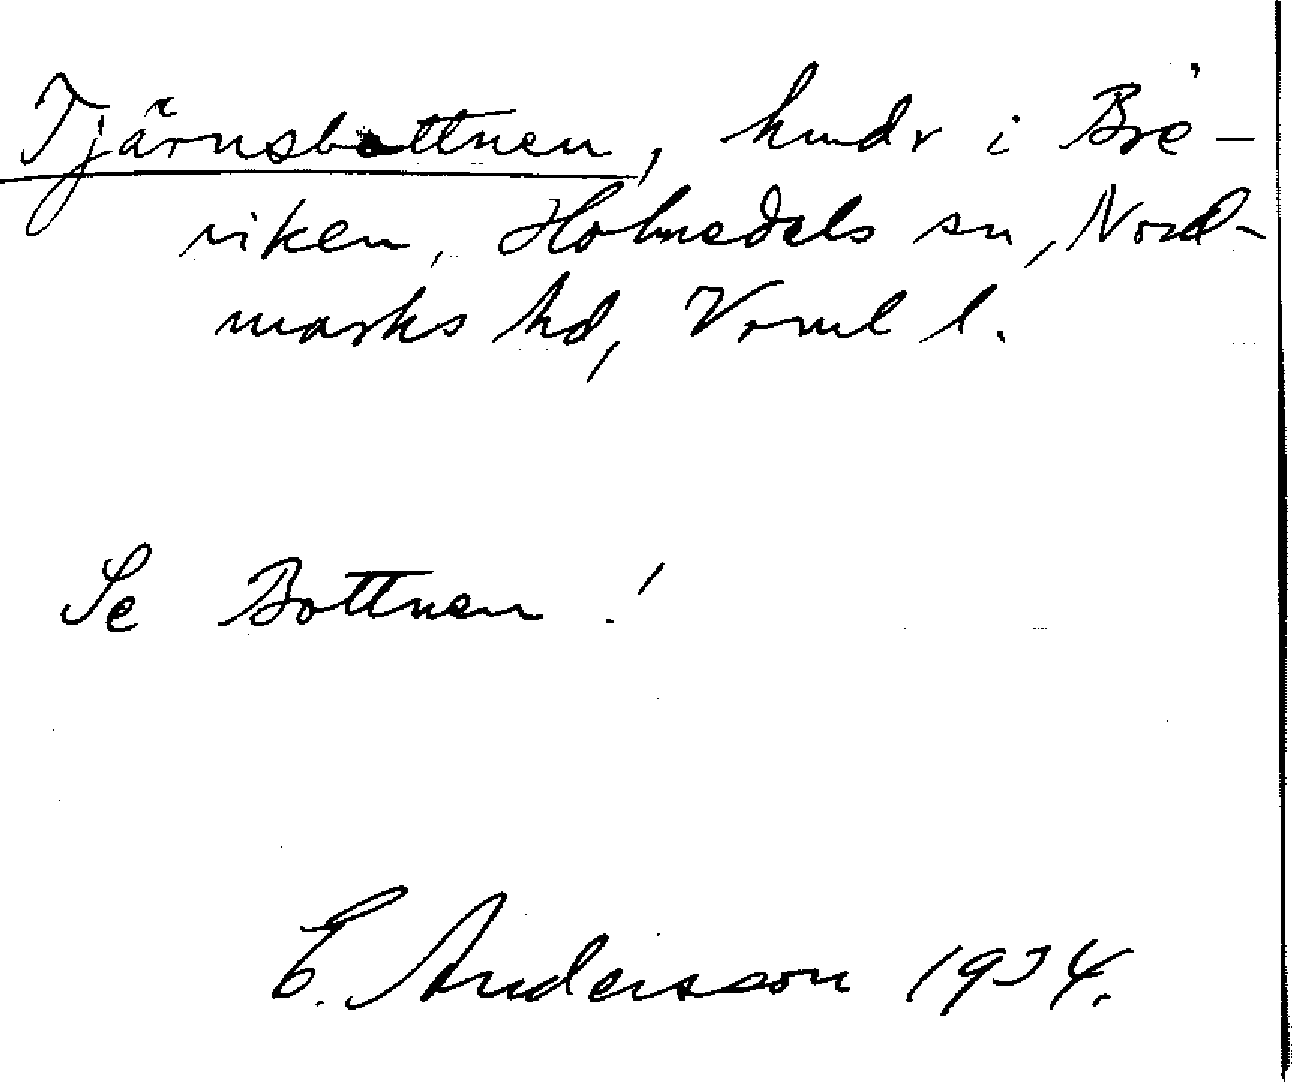 Tjärnsbottnen, hmdr i Bré-
viken, Holmedals sn, Nord-
marks hd, Vrml l.
Se Bottnen!
E. Andersson 1934.